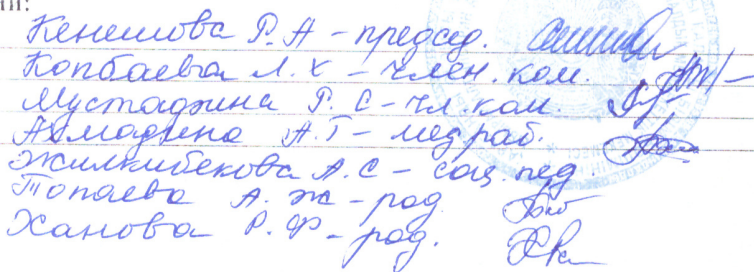 ии:
Кенешова Р. А - председ.
Копбаева Л. Х - член. ком.
Мустафина Р. С - чл. ком.
Ахмадина А. Г - мед раб.
Жилкибекова А. С - соц. пед
Топаева А. Ж - род
Ханова Р. Ф - род.